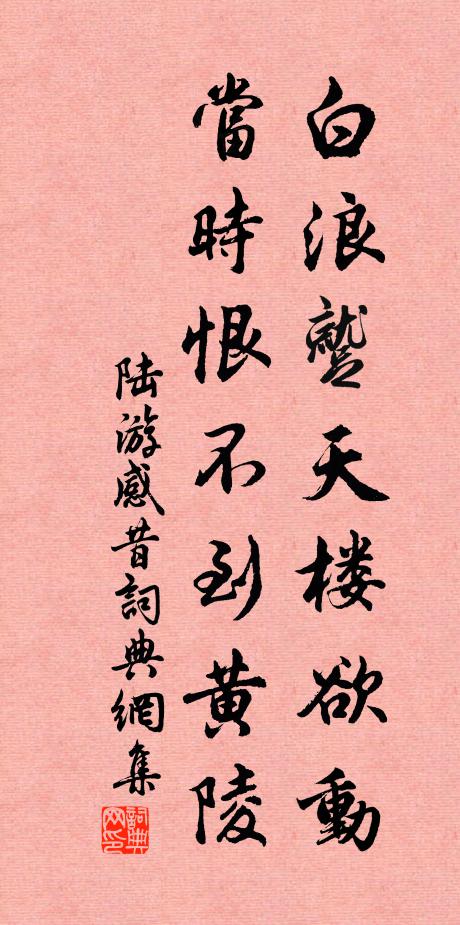 白浪蹵天楼欲動
當時恨不到黄陵
陆游感昔詞典網集
詞典
网印